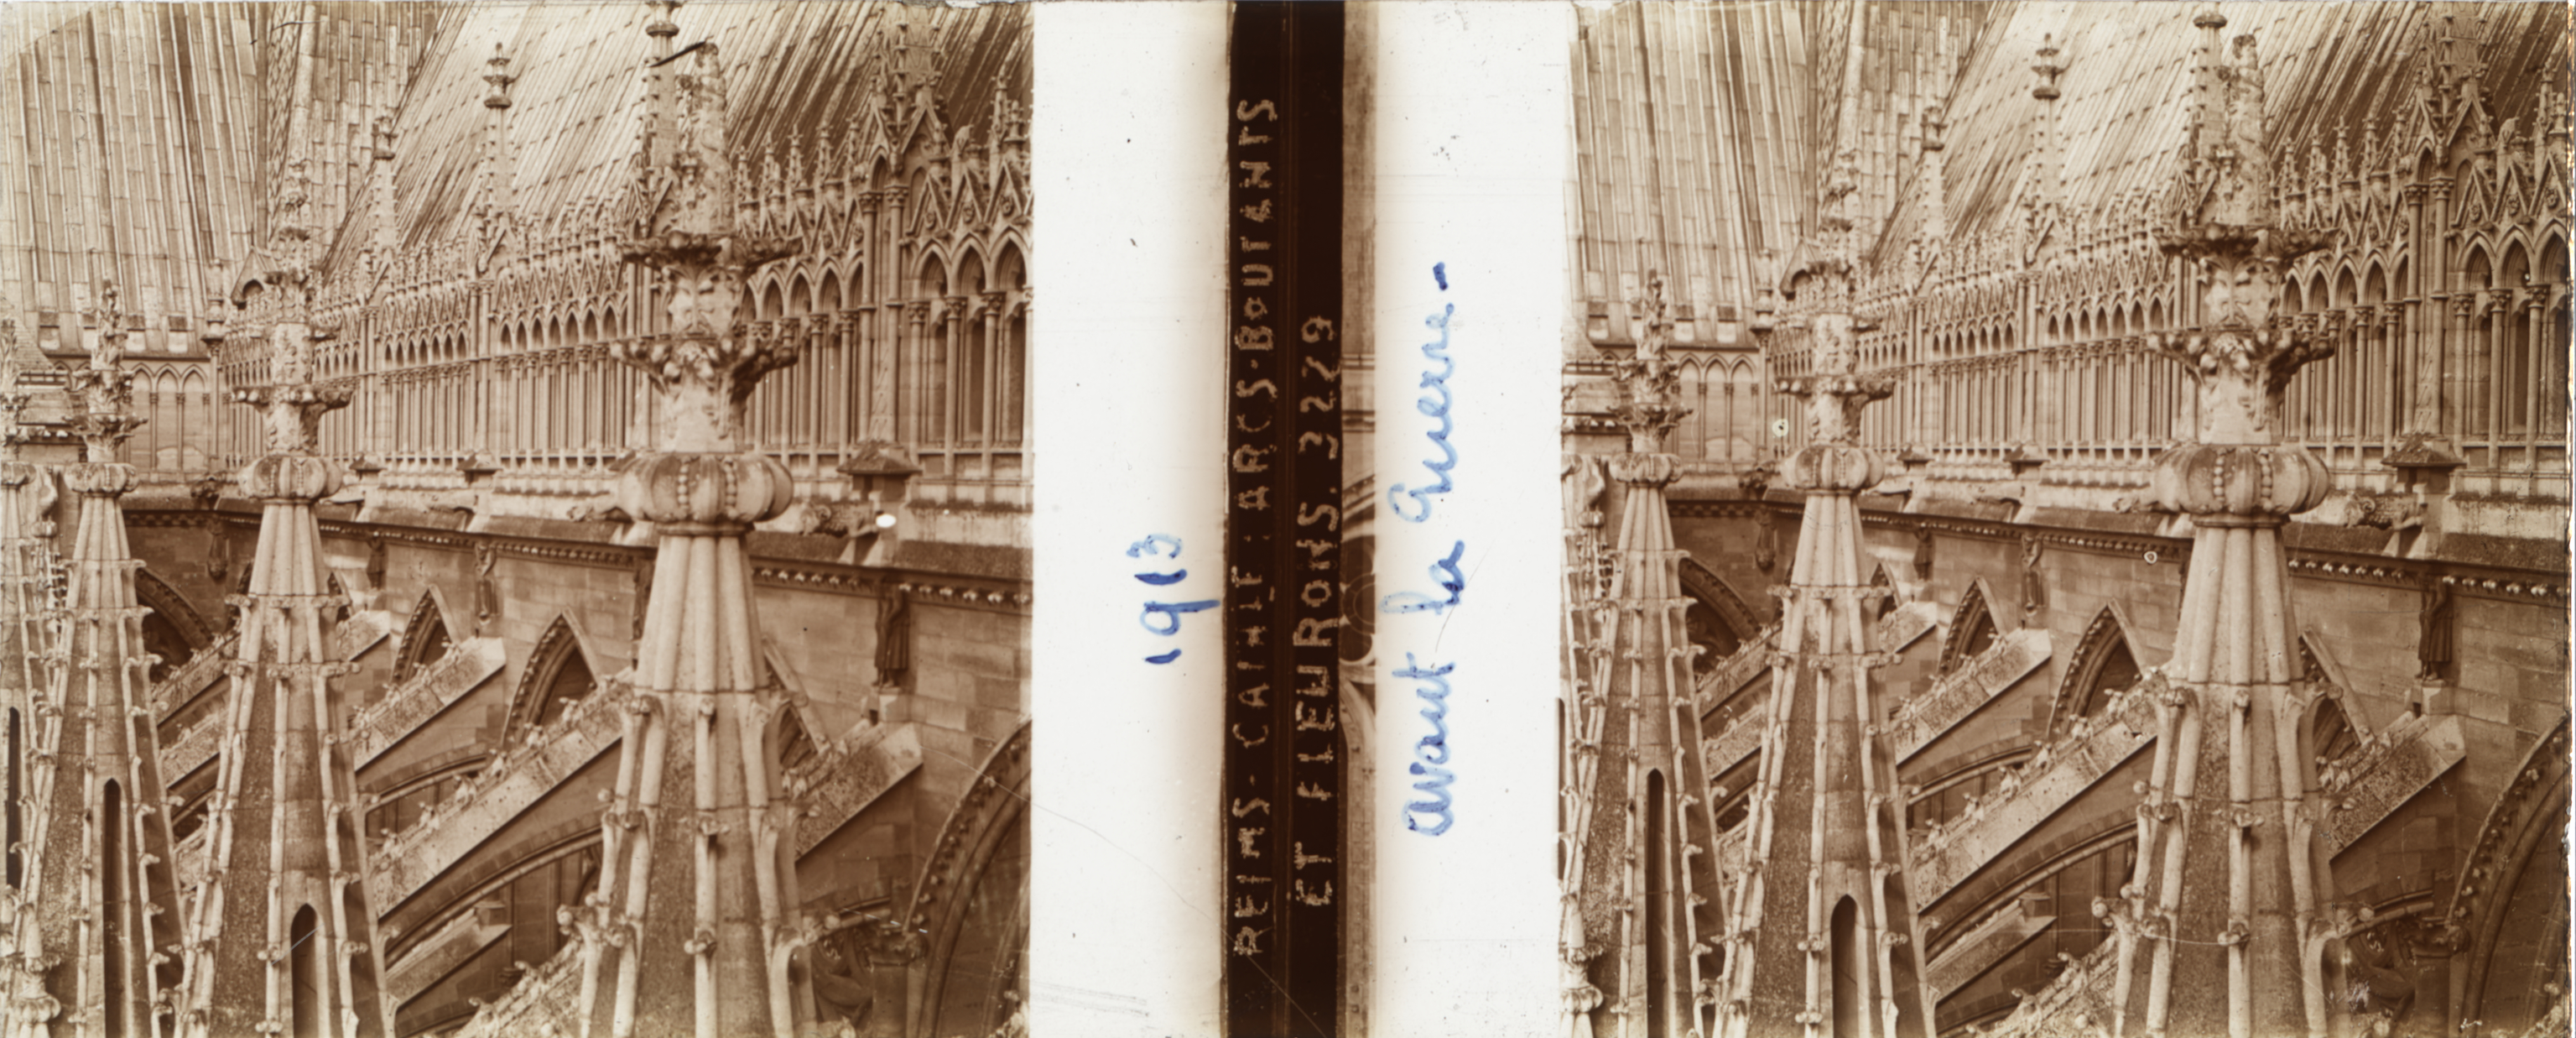 1913
REIMS - CATHLE : ARCS-BOUTANTS
ET FLEURONS. 3229
avant la Guerre -